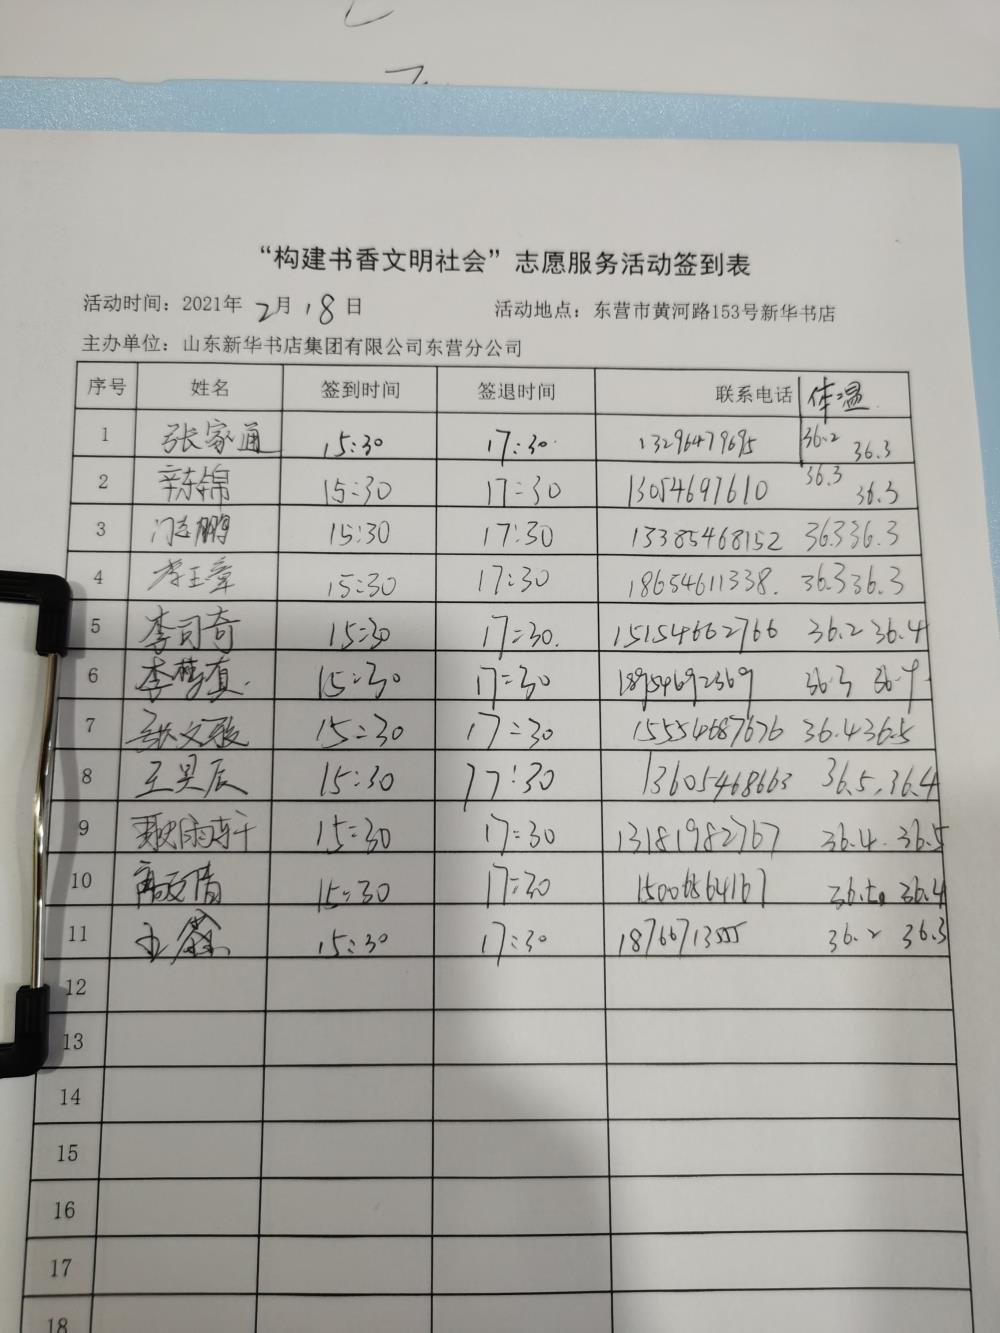 “构建书香文明社会”志愿服务活动签到表
活动时间：2021年2月18日 活动地点：东营市黄河路153号新华书店
主办单位：山东新华书店集团有限公司东营分公司
序号 姓名 签到时间 签退时间 联系电话 体温
1 张家通 15:30 17:30 13296479695 36.2 36.3
2 辛东锦 15:30 17:30 13054697610 36.3 36.3
3 闫志鹏 15:30 17:30 13385468152 36.3 36.3
4 李玉章 15:30 17:30 18654611338. 36.3 36.3
5 李司奇 15:30 17:30. 15154662766 36.2 36.4
6 李梦真. 15:30 17:30 18954692369 36.3 36.4
7 张文 15:30 17:30 15554687676 36.4 36.5
8 王昊辰 15:30 17:30 13605468663 36.5, 36.4
9 耿雨轩 15:30 17:30 13181982767 36.4. 36.5
10 高 倩 15:30 17:30 15006864167 36.5, 36.4
11 王鑫 15:30 17:30 18766713555 36.2 36.3
12
13
14
15
16
17
18